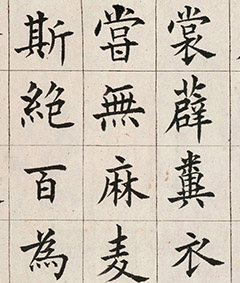 裳薜糞衣
甞無麻麦
斯絶百為